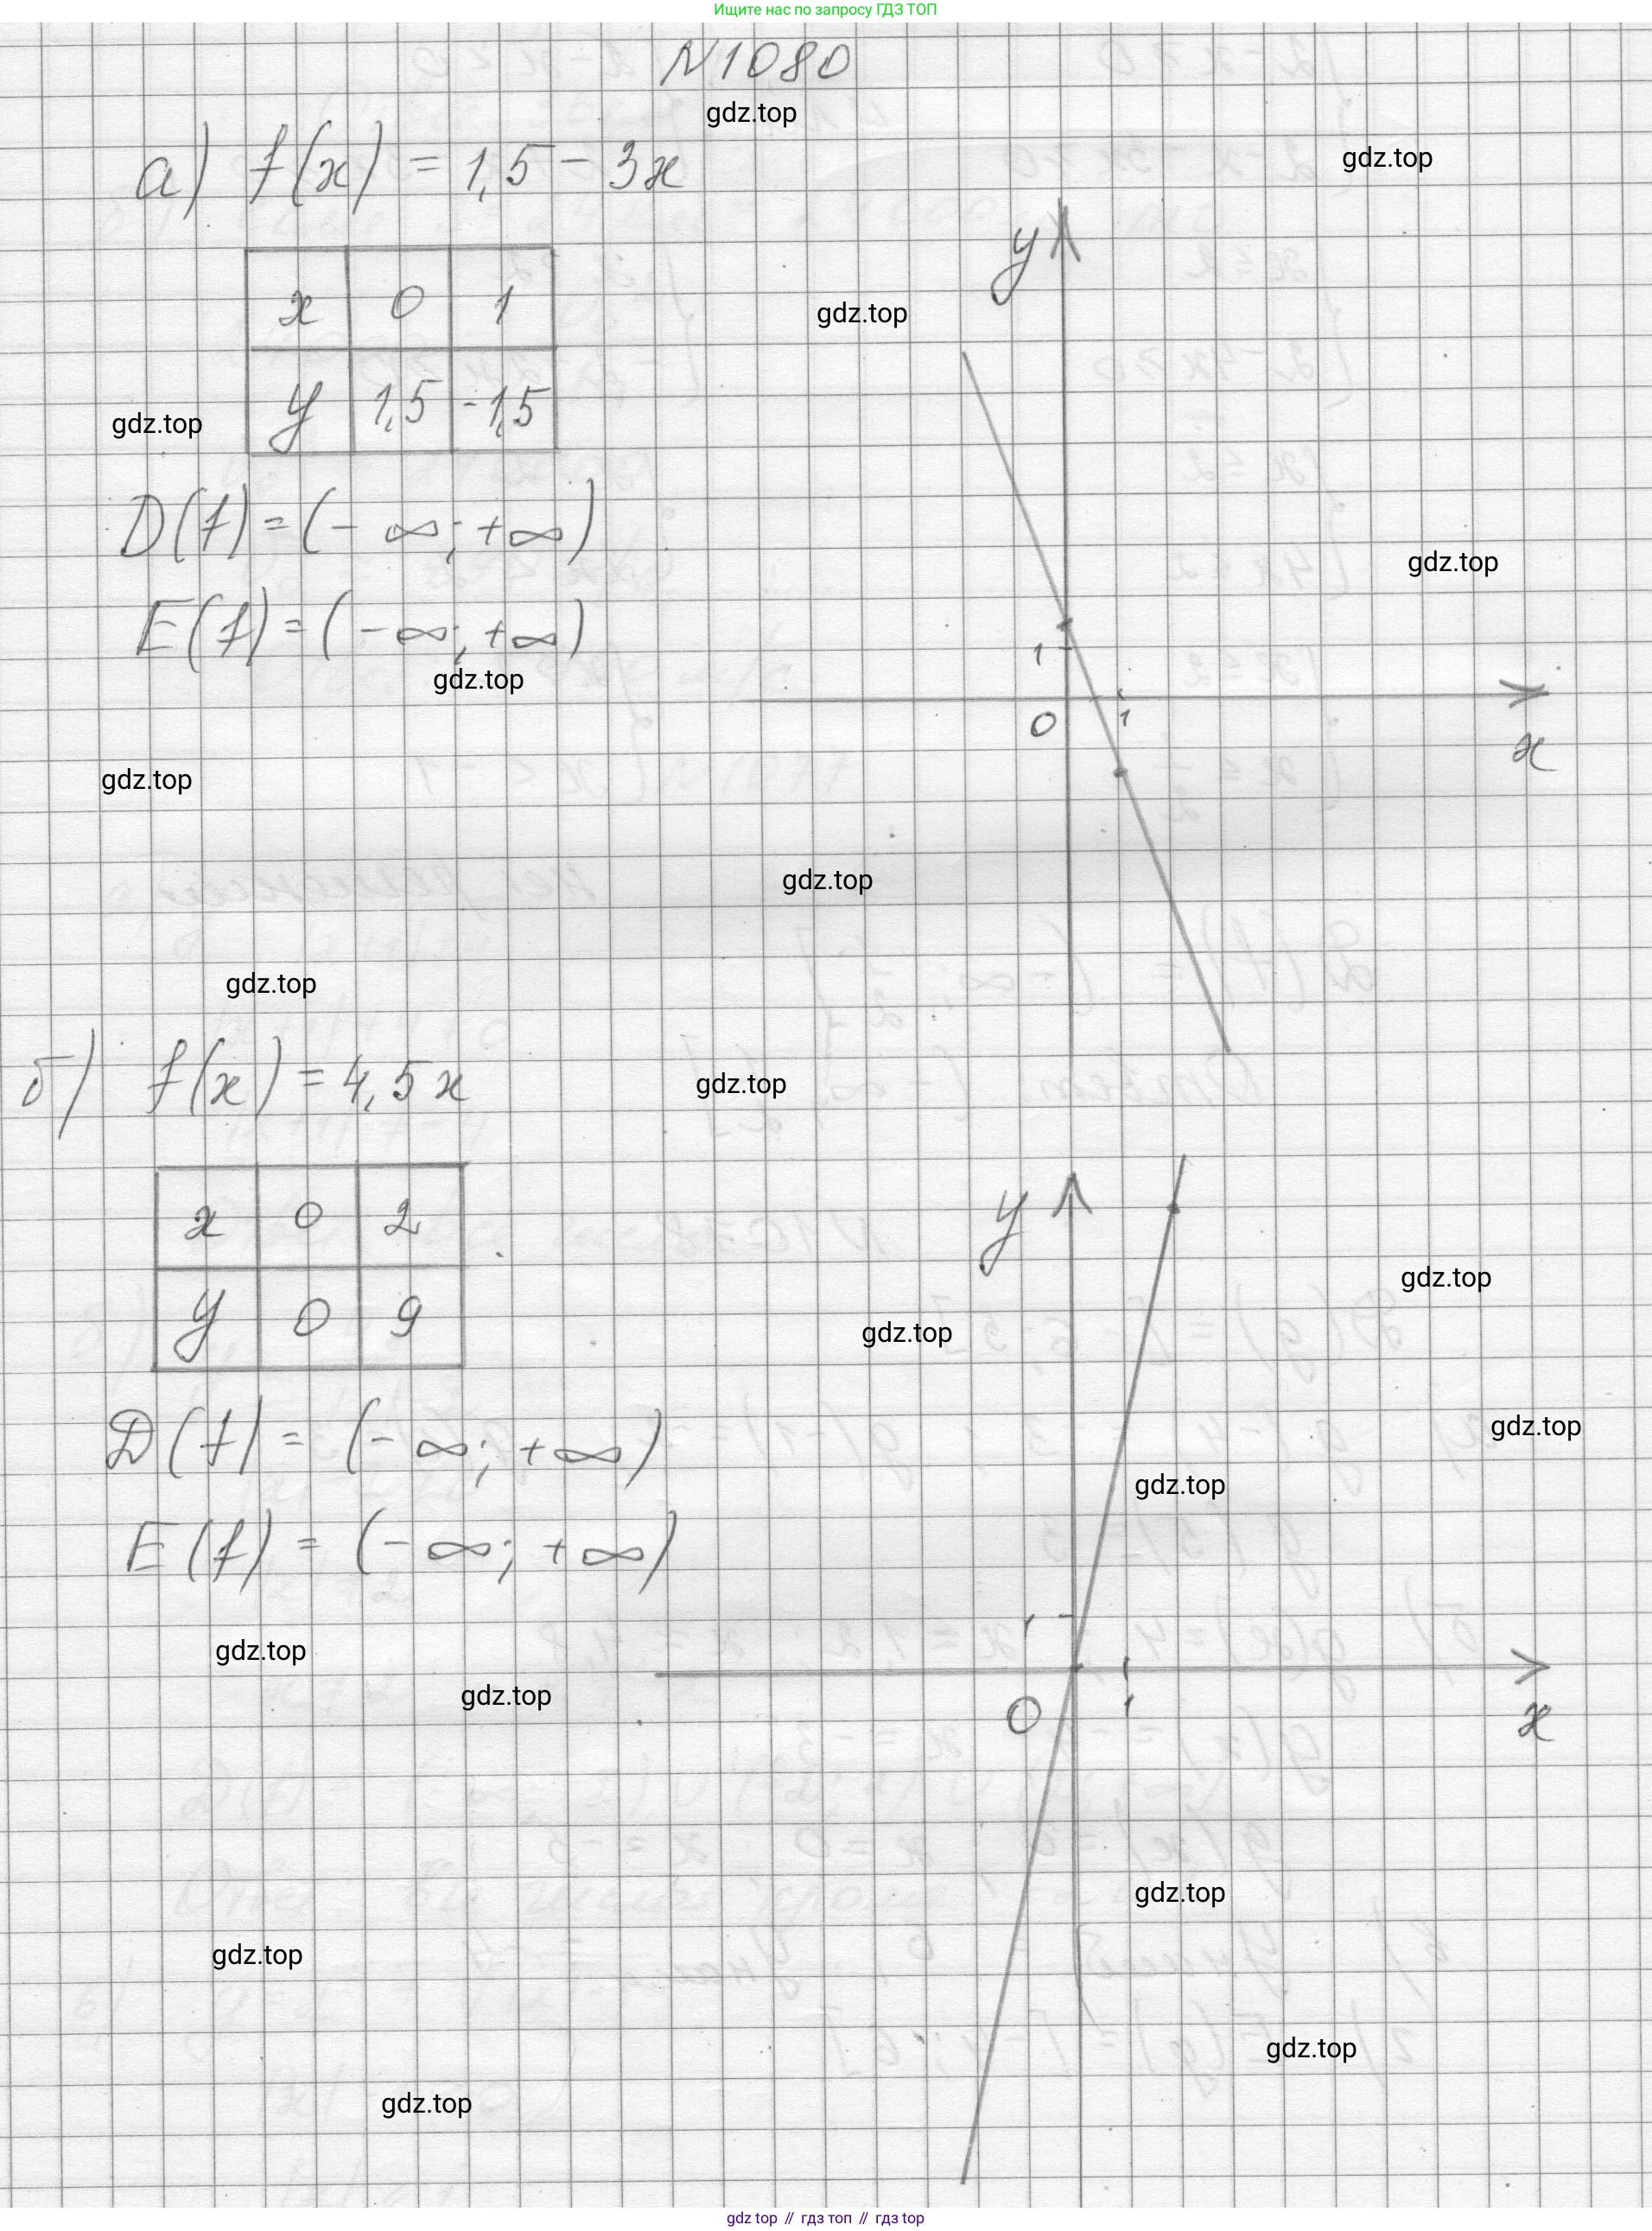 Ищите нас по запросу ГДЗ ТОП
N1080
gdz.top
а) f(x) = 1,5 - 3x
gdz.top
y
x 0 1
gdz.top
y 1,5 -1,5
gdz.top
D(f) = (-∞; +∞)
gdz.top
E(f) = (-∞; +∞)
gdz.top
1
0 1
x
gdz.top
gdz.top
gdz.top
б) f(x) = 4,5x
gdz.top
y
x 0 2
gdz.top
gdz.top
y 0 9
D(f) = (-∞; +∞)
gdz.top
gdz.top
E(f) = (-∞; +∞)
1
gdz.top
gdz.top
0 1
x
gdz.top
gdz.top
gdz.top
gdz.top
gdz top // гдз топ // гдз top